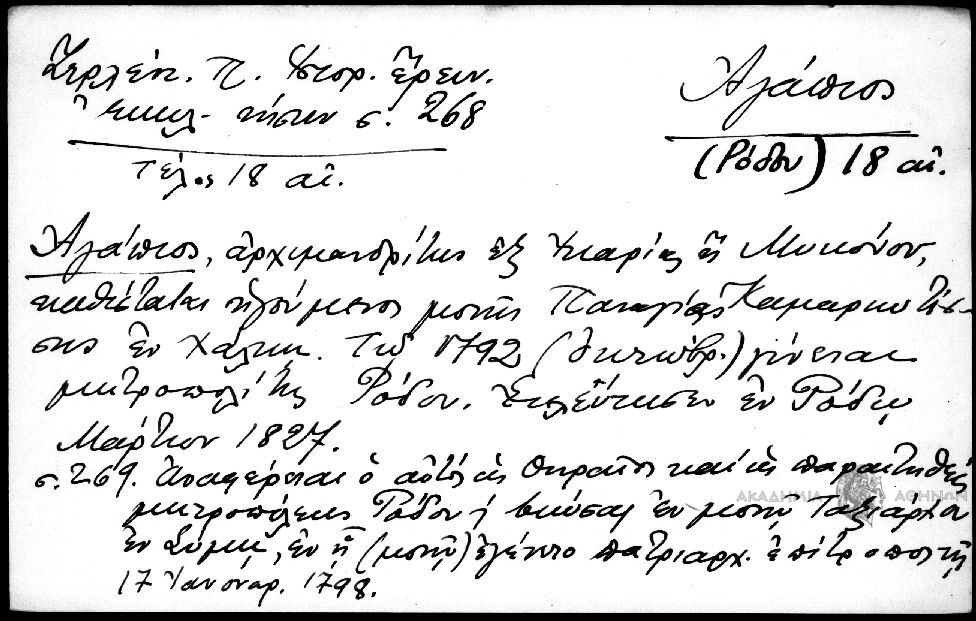 Ζερλέντ. Π. Ἱστορ. ἔρευν.
ἐκκλ. νήσων σ. 268
Ἀγάπιος
(Ρόδου) 18 αἰ.
Τέλος 18 αἰ.
Ἀγάπιος, ἀρχιμανδρίτης ἐξ Ἰκαρίας ἢ Μυκόνου,
καθίσταται ἡγούμενος μονῆς Παναγίας Καμαριωτίσ-
σης ἐν Χάλκῃ. Τῷ 1792 (Ὀκτώβρ.) γίνεται
μητροπολίτης Ρόδου. Ἐτελεύτησεν ἐν Ρόδῳ
Μάρτιον 1827.
σ. 269. Ἀναφέρεται ὁ αὐτὸς ὡς Θηραῖος καὶ ὡς παραιτηθεὶς
μητροπόλεως Ρόδου ἐν μονῇ Ταξιάρχου
ἐν Σύμῃ, ἐν ᾗ (μονῇ) ἐγένετο πατριαρχ. ἐπίτροπος τῇ
17 Ἰανουαρ. 1798.
ΑΚΑΔΗΜΙΑ ΑΘΗΝΩΝ